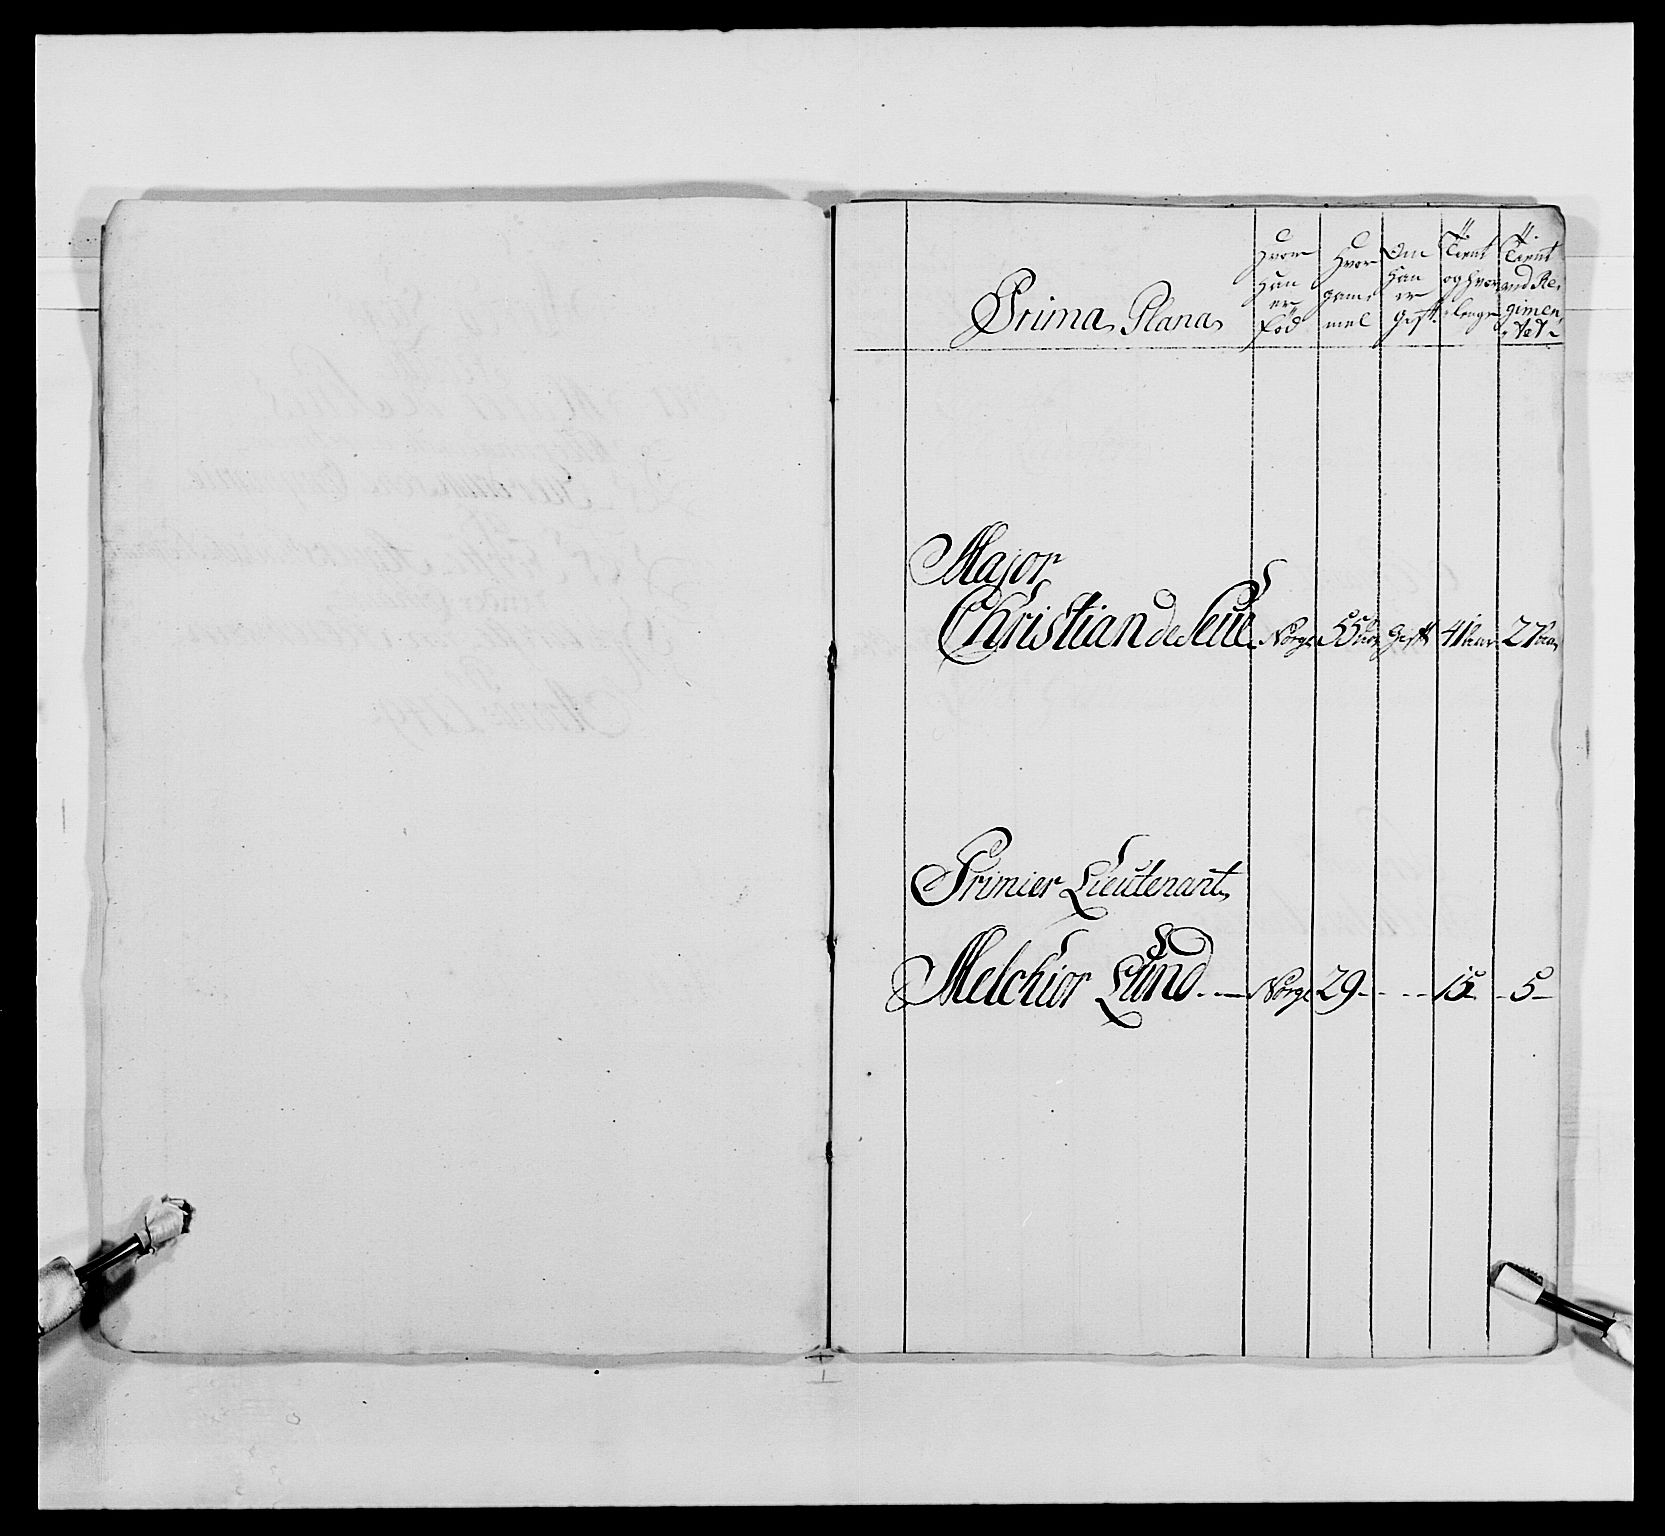 Prima Plana
Hvor han er Fød
Hvor gam= mel
Om han er Gift
Tient og hvor lenge
Tient ved Re= gimen= tet
Major
Christian de Seue Norge 55 aar Gift 41 aar 27 aar
Primier Lieutenant
Melchior Lund Norge 29 - - - 15 - 5 -